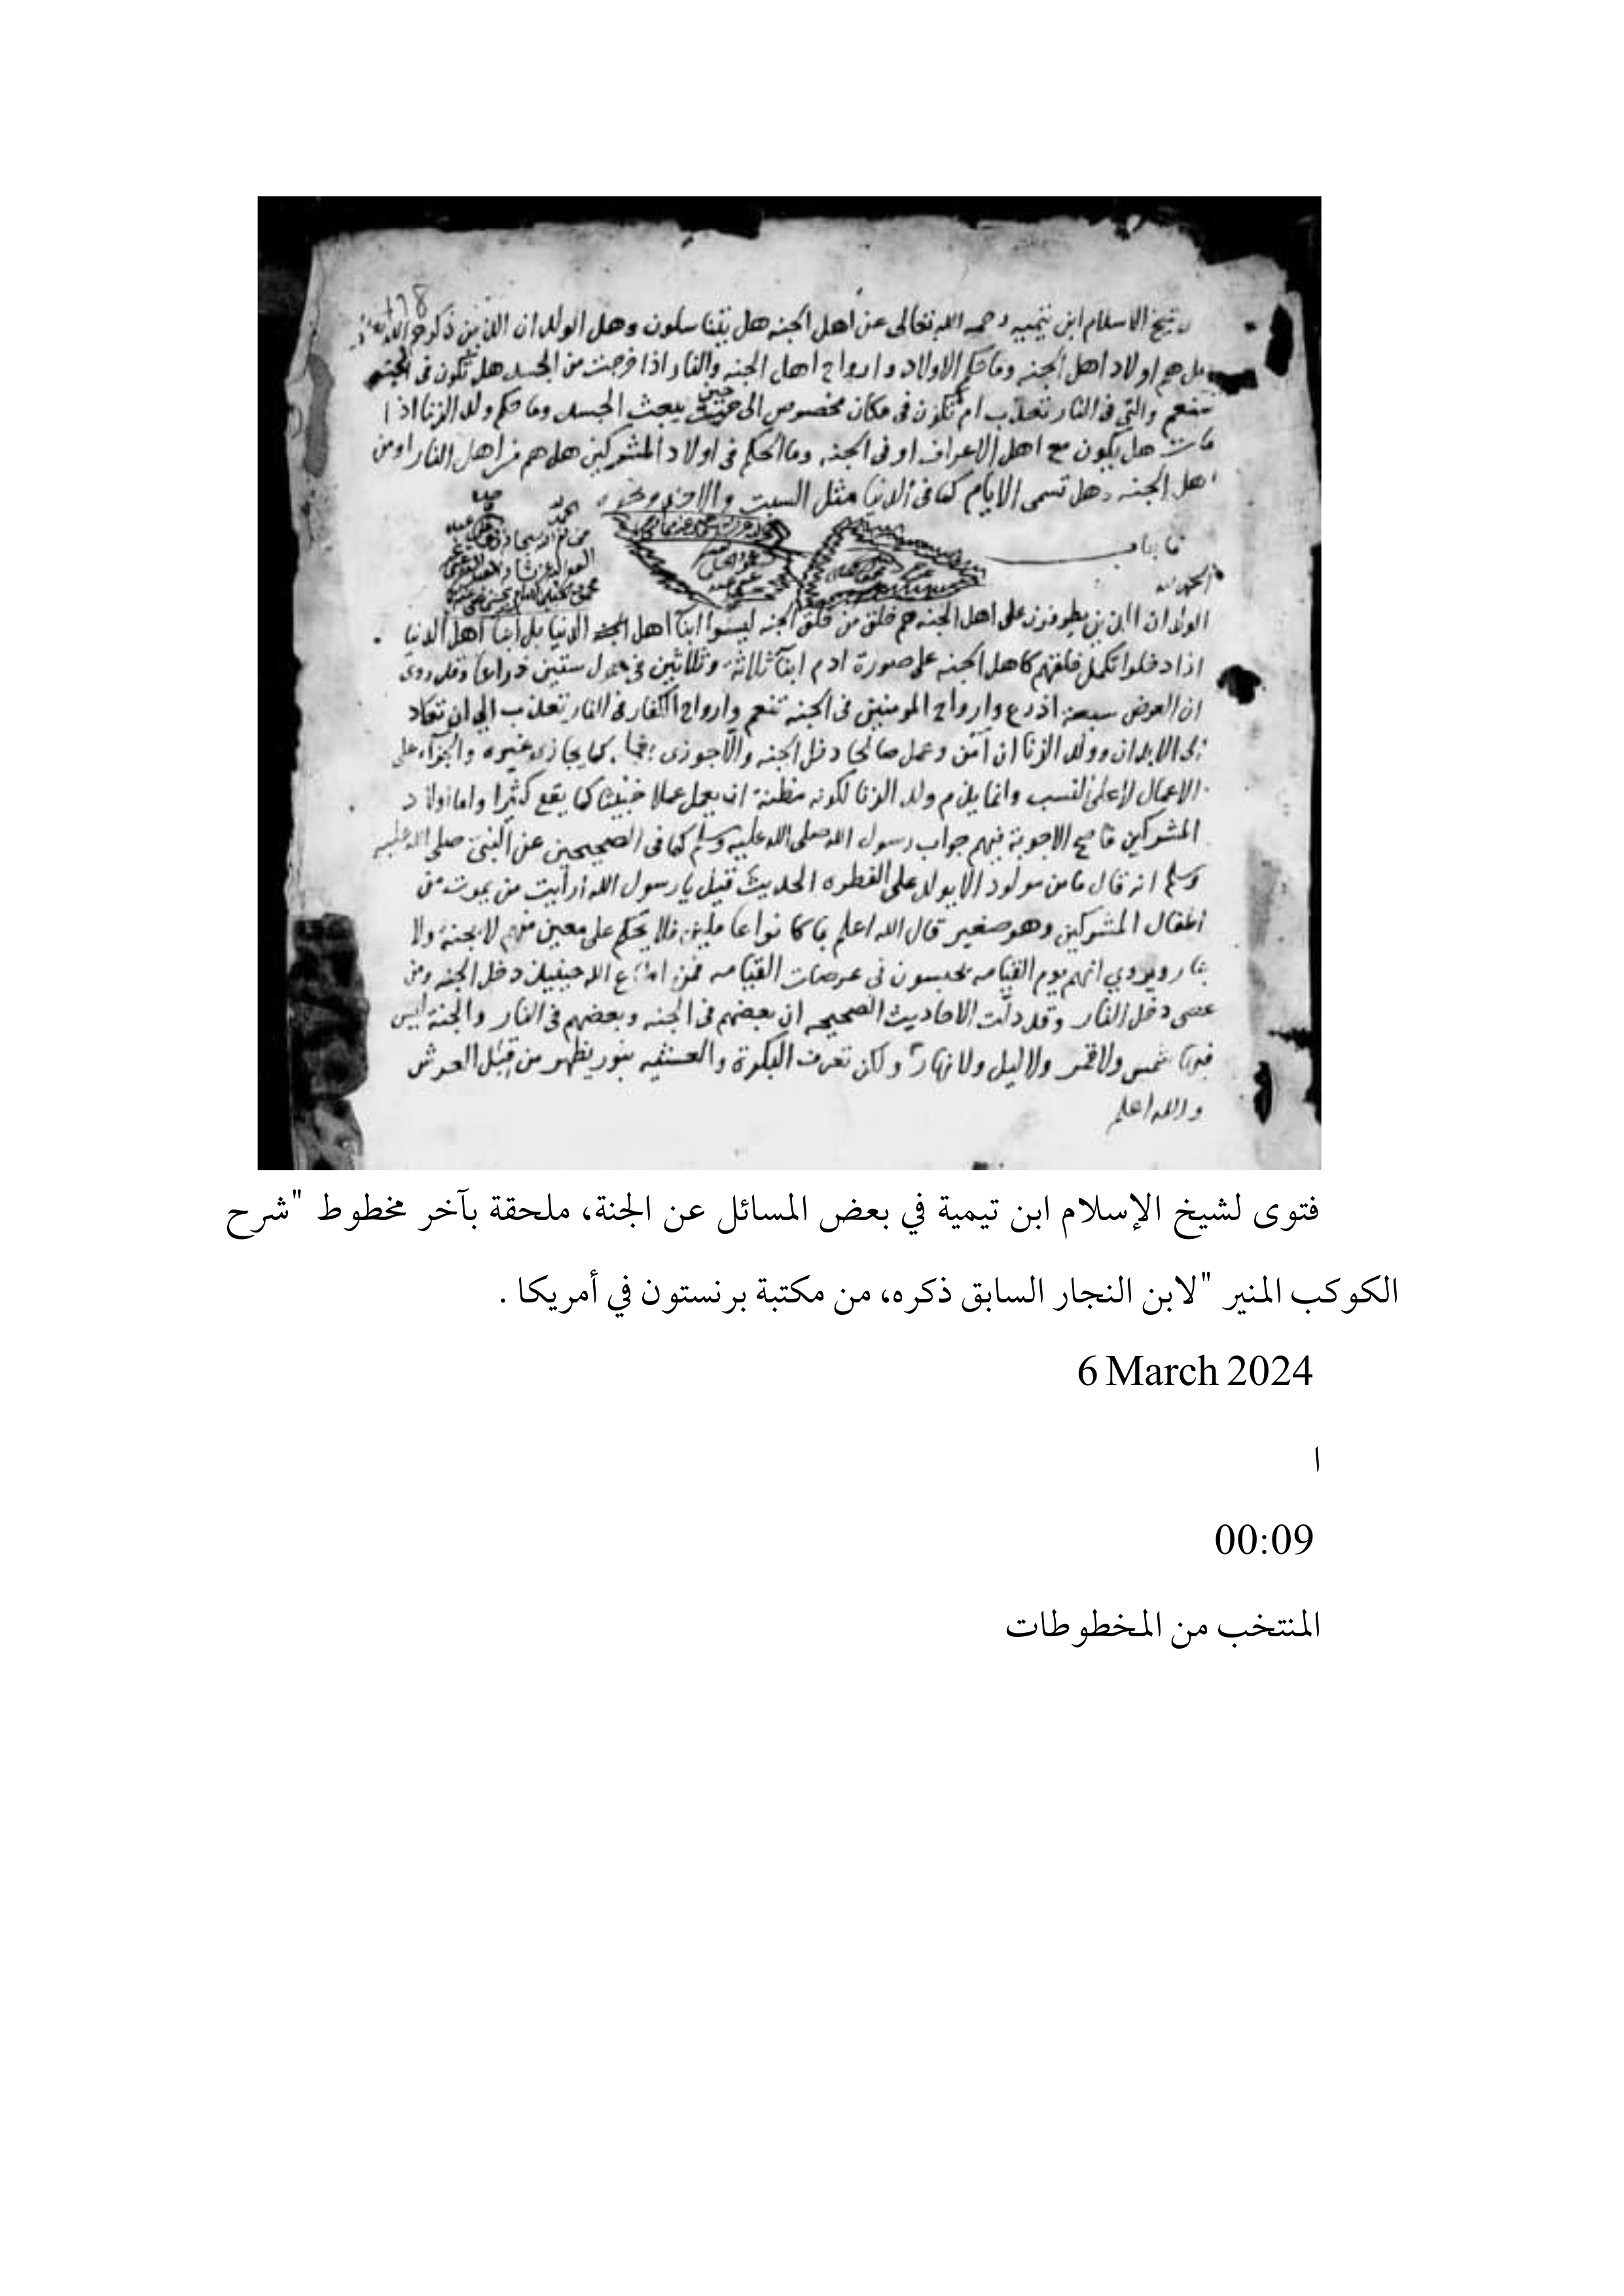 شيخ الاسلام ابن تيميه رحمه الله تعالى عن اهل الجنه هل يتناسلون وهل الولدان الذين ذكرهم الله
هل هم اولاد اهل الجنه وما حكم الاولاد وارواح اهل الجنه والنار اذا خرجت من الجسد هل تكون في الجنه
تنعم والتي في النار تعذب ام تكون في مكان مخصوص الى حين يبعث الجسد وما حكم ولد الزنا اذا
مات هل يكون مع اهل الاعراف او في الجنه وما الحكم في اولاد المشركين هل هم من اهل النار او من
اهل الجنه وهل تسمى الايام كما في الدنيا مثل السبت والاحد ونحوه
فاجاب
الحمد لله
الولدان الذين يطوفون على اهل الجنه هم خلق من خلق الجنه ليسوا ابنا اهل الدنيا بل ابنا اهل الدنيا
اذا دخلوا تكمل خلقهم كاهل الجنه على صورة ادم ابنآ ثلاثة وثلاثين في طول ستين ذراعا وقد روى
ان العرض سبعة اذرع وارواح المومنين في الجنه تنعم وارواح الكفار في النار تعذب الى ان تعاد
الى الابدان وولد الزنا ان آمن وعمل صالحا دخل الجنه والا جوزى بعمله كما يجازى غيره والجزآء على
الاعمال لا على النسب وانما يذم ولد الزنا لكونه مظنة ان يعمل عملا خبيثا كما يقع كثيرا واما اولاد
المشركين فاصح الاجوبة فيهم جواب رسول الله صلى الله عليه وسلم كما في الصحيحين عن النبي صلى الله عليه
وسلم انه قال ما من مولود الا يولد على الفطره الحديث قيل يا رسول الله أرأيت من يموت من
اطفال المشركين وهو صغير قال الله اعلم بما كانوا عاملين فلا يحكم على معين منهم لا بجنة ولا
بنار ويروي انهم يوم القيامه يحبسون في عرصات القيامه فمن اطاع الله حينيذ دخل الجنه ومن
عصى دخل النار وقد دلت الاحاديث الصحيحه ان بعضهم في الجنه وبعضهم في النار والجنة ليس
فيها شمس ولا قمر ولا ليل ولا نهار ولكن تعرف البكرة والعشيه بنور يظهر من قبل العرش
والله اعلم
فتوى لشيخ الإسلام ابن تيمية في بعض المسائل عن الجنة، ملحقة بآخر مخطوط "شرح
الكوكب المنير "لابن النجار السابق ذكره، من مكتبة برنستون في أمريكا .
6 March 2024
ا
00:09
المنتخب من المخطوطات